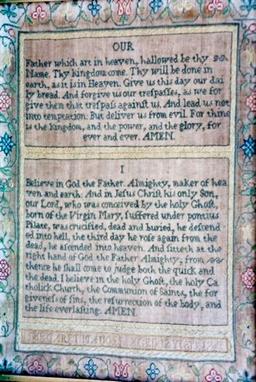 OUR
Father which art in heaven, hallowed be thy
Name. Thy kingdom come. Thy will be done in
earth, as it is in Heaven. Give us this day our dai
ly bread. And forgive us our trespasses, as we for
give them that trespass against us. And lead us not
into temptation. But deliver us from evil. For thine
is the kingdom, and the power, and the glory, for
ever and ever. AMEN.
I
Believe in God the Father Almighty, maker of hea
ven and earth: And in Jesus Christ his only Son,
our Lord, who was conceived by the holy Ghost,
born of the Virgin Mary, suffered under pontius
Pilate, was crucified, dead and buried, he descend
ed into hell, the third day he rose again from the
dead, he ascended into heaven. And sitteth at the
right hand of God the Father Almighty; from
thence he shall come to judge both the quick and
the dead. I believe in the holy Ghost, the holy Ca
tholick Church, the Communion of Saints, the for
giveness of sins, the resurrection of the body, and
the life everlasting. AMEN.